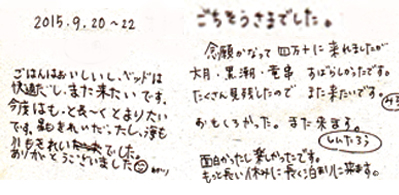 2015.9.20～22
ごはんはおいしいし、ベッドは
快適だし、また来たいです。
今度はもっと長～くとまりたい
です。星もきれいだったし、海も
川もきれいでした。
ありがとうございました
ごちそうさまでした。
念願かなって四万十に来れましたが
大月・黒潮・竜串 すばらしかったです。
たくさん見残したので また来たいです。
おもしろかった。また来ます。
しんたろう
面白かったし楽しかったです。
もっと長い休みに長く泊まりに来ます。